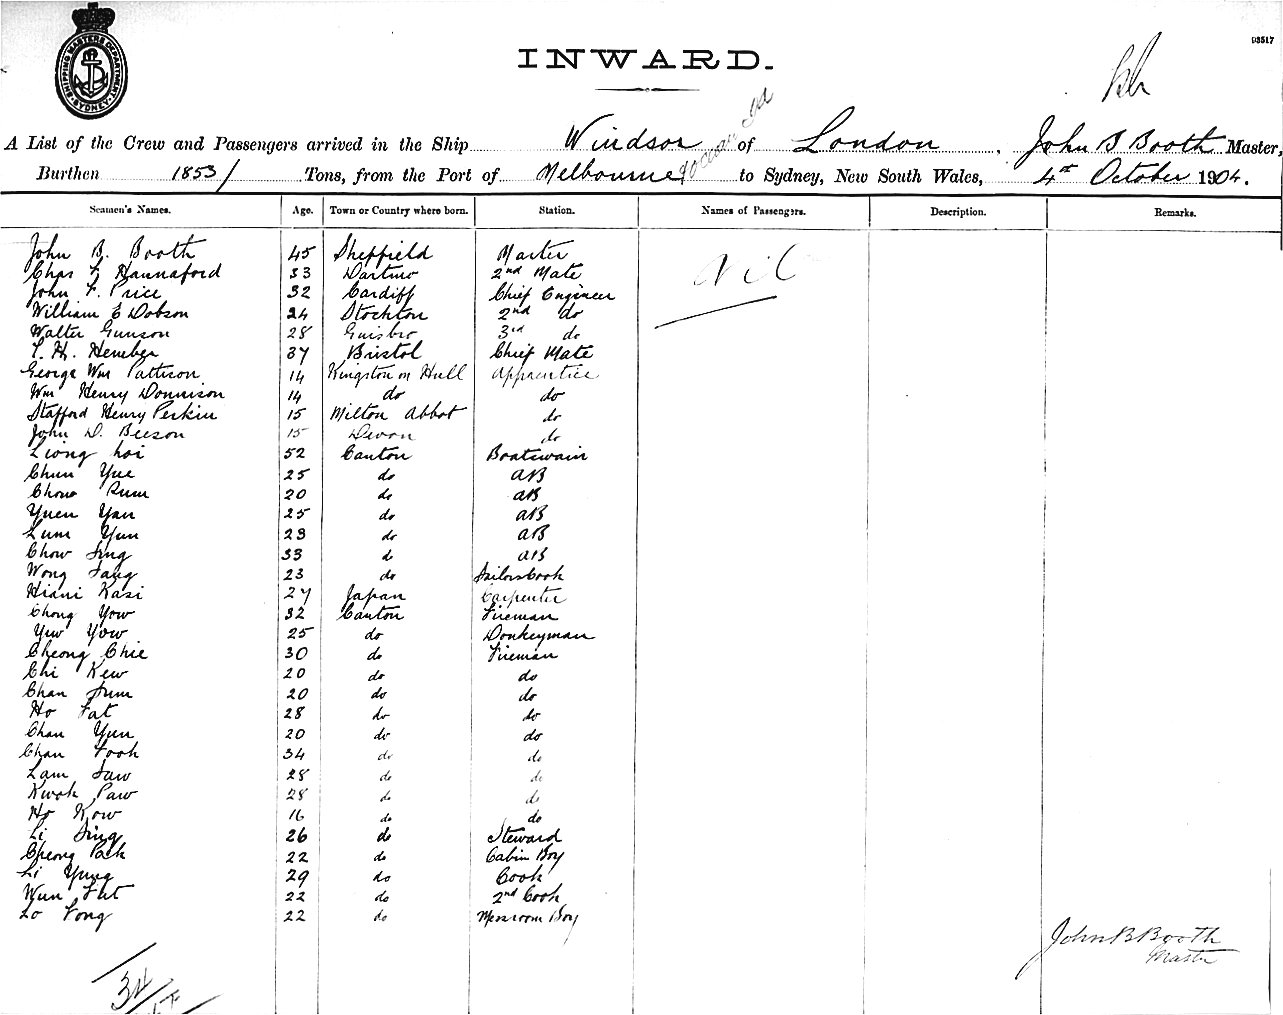 SHIPPING MASTERS DEPARTMENT SYDNEY
93517
INWARD.
A List of the Crew and Passengers arrived in the Ship Windsor of London, John B Booth Master,
Burthen 1853/ Tons, from the Port of Melbourne to Sydney, New South Wales, 4th October 1904.
Seamen's Names. Age. Town or Country where born. Station. Names of Passengers. Description. Remarks.
John B. Booth 45 Sheffield Master Nil
Chas Hannaford 33 2nd Mate
John F. Price 32 Cardiff Chief Engineer
William E Dobson 24 Stockton 2nd do
Walter Gunson 28 Guisbro 3rd do
37 Bristol Chief Mate
George Wm Pattison 14 Kingston on Hull Apprentice
Wm Henry Donnison 14 do do
Stafford Henry Perkin 15 Milton Abbot do
John D. Beeson 15 Devon do
Liong hoi 52 Canton Boatswain
Chun Yue 25 do AB
Chow 20 do AB
Yuen Yan 25 do AB
Lum Yun 23 do AB
Chow Sing 33 do AB
Wong 23 do Sailors Cook
Hiani Kasi 27 Japan Carpenter
Chong Yow 32 Canton Fireman
Yuw Yow 25 do Donkeyman
Cheong Chie 30 do Fireman
Chi Kew 20 do do
Chan Sum 20 do do
Ho Fat 28 do do
Chan Yun 20 do do
Chan Fook 34 do do
Lam Saw 28 do do
Kwok Paw 28 do do
Ho Kow 16 do do
Li Sing 26 do Steward
Cheong Pack 22 do Cabin Boy
Li Yung 29 do Cook
Wun Fat 22 do 2nd Cook
Lo Fong 22 do Messroom Boy
John B Booth
Master
34